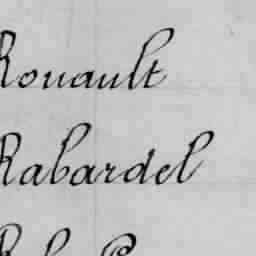 Rouault
Rabardel